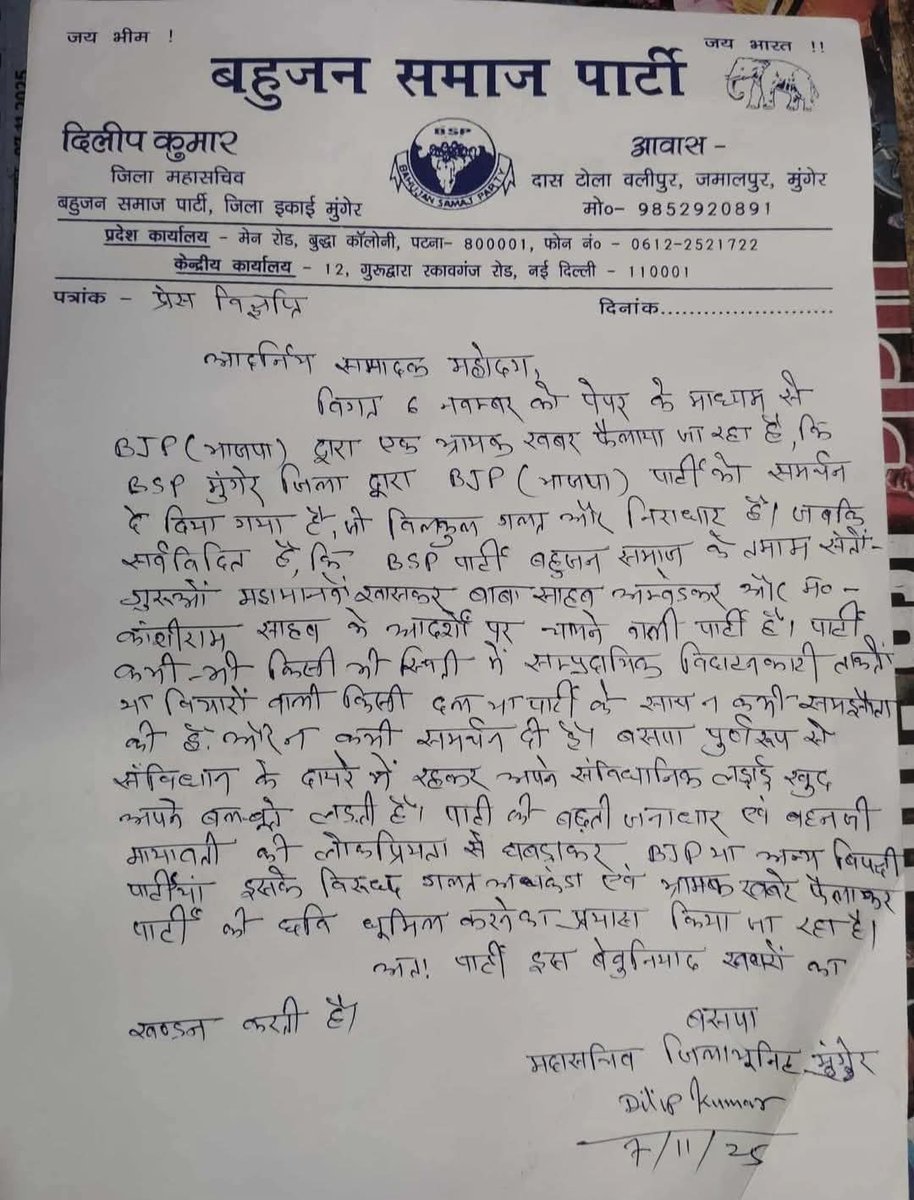 जय भीम !
जय भारत !!
बहुजन समाज पार्टी
दिलीप कुमार
जिला महासचिव
बहुजन समाज पार्टी, जिला इकाई मुंगेर
BSP
BAHUJAN SAMAJ PARTY
आवास -
दास टोला वलीपुर, जमालपुर, मुंगेर
मो०- 9852920891
प्रदेश कार्यालय - मेन रोड, बुद्धा कॉलोनी, पटना- 800001, फोन नं० - 0612-2521722
केन्द्रीय कार्यालय - 12, गुरूद्वारा रकावगंज रोड, नई दिल्ली - 110001
पत्रांक - प्रेस विज्ञप्ति
दिनांक........................
आदर्निय सम्पादक महोदय,
विगत 6 नवम्बर को पेपर के माध्यम से
BJP (भाजपा) द्वारा एक भ्रामक खबर फैलाया जा रहा है, कि
BSP मुंगेर जिला द्वारा BJP (भाजपा) पार्टी को समर्थन
दे दिया गया है, जो बिलकुल गलत और निराधार है। जबकि
सर्वविदित है, कि BSP पार्टी बहुजन समाज के तमाम संतों-
गुरूओं महामानवों खासकर बाबा साहब अम्बेडकर और मा०-
कांशीराम साहब के आदर्शों पर चलने वाली पार्टी है। पार्टी
कभी-भी किसी भी स्थिती में सम्प्रदायिक विघटनकारी तकतों
या विचारों वाली किसी दल या पार्टी के साथ न कभी समझौता
की है. और न कभी समर्थन दी है। बसपा पुर्णरूप से
संविधान के दायरे में रहकर अपने संविधानिक लड़ाई खुद
अपने बल-बूते लड़ती है। पार्टी की बढ़ती जनाधार एवं बहनजी
मायावती की लोकप्रियता से घबड़ाकर BJP या अन्य विपक्षी
पार्टीयां इसके विरूध्द गलत एवं भ्रामक खबरें फैलाकर
पार्टी की छवि धूमिल करनेका प्रयास किया जा रहा है।
अत! पार्टी इस बेबुनियाद खबरों का
खण्डन करती है।
बसपा
महासचिव जिला यूनिट मुंगेर
Dilip Kumar
7/11/25